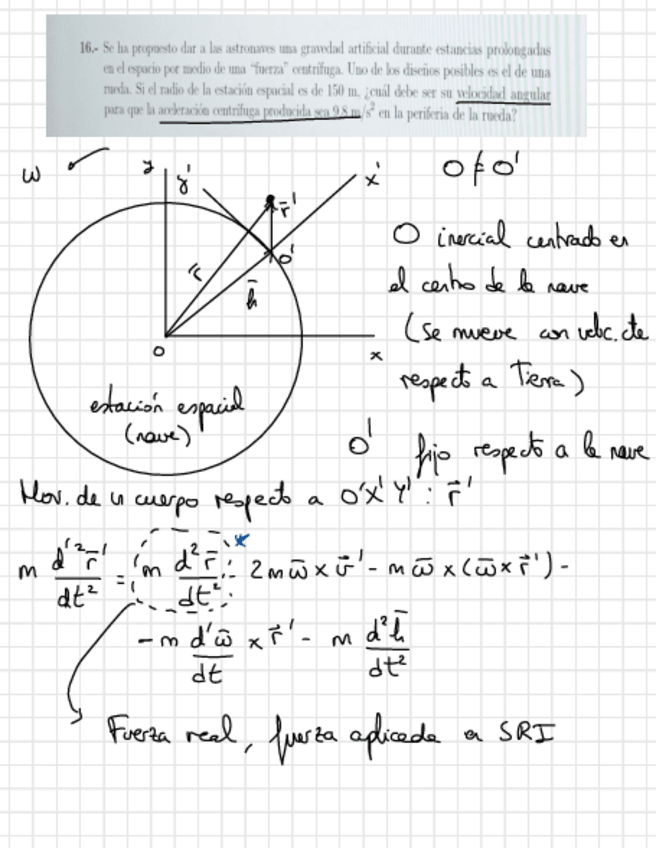 16.- Se ha propuesto dar a las astronaves una gravedad artificial durante estancias prolongadas
en el espacio por medio de una "fuerza" centrífuga. Uno de los diseños posibles es el de una
rueda. Si el radio de la estación espacial es de 150 m, ¿cuál debe ser su velocidad angular
para que la aceleración centrífuga producida sea 9.8 m/s² en la periferia de la rueda?
ω
y
y'
x'
O ≠ O'
r̄'
O'
r̄
h̄
O
x
O inercial centrado en
el centro de la nave
(se mueve con veloc. cte
respecto a Tierra)
estación espacial
(nave)
O' fijo respecto a la nave
Mov. de un cuerpo respecto a O'X'Y' : r̄'
m d'²r̄'/dt² = m d²r̄/dt² - 2mω̄ × v̄' - mω̄ × (ω̄ × r̄') -
- m d'ω̄/dt × r̄' - m d²h̄/dt²
Fuerza real, fuerza aplicada en SRI